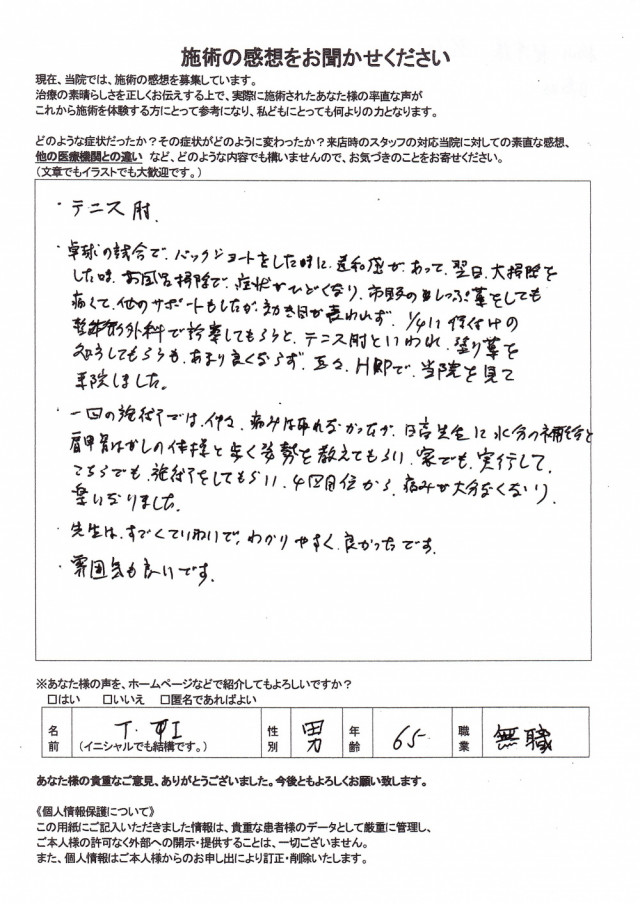 施術の感想をお聞かせください
現在、当院では、施術の感想を募集しています。
治療の素晴らしさを正しくお伝えする上で、実際に施術されたあなた様の率直な声が
これから施術を体験する方にとって参考になり、私どもにとっても何よりの力となります。
どのような症状だったか？その症状がどのように変わったか？来店時のスタッフの対応当院に対しての素直な感想、
他の医療機関との違い など、どのような内容でも構いませんので、お気づきのことをお寄せください。
（文章でもイラストでも大歓迎です。）
・テニス肘.
・卓球の試合で、バックショートをした時に、違和感があって、翌日、大掃除を
した時、お風呂掃除で、症状がひどくなり、市販のしっぷ薬をしても
痛くて、他のサポートもしたが、効き目が表われず、1/4に 付けの
外科で診察してもらうと、テニス肘といわれ、塗り薬を
してもらうも、あまり良くならず、HPで、当院を見て
来院しました。
・一回の施術では、痛みは取れなかったが、日高先生に水分の補給と
肩甲骨はがしの体操と歩く姿勢を教えてもらい、家でも、実行して、
こちらでも、施術をしてもらい、4回目位から、痛みが大分なくなり、
楽になりました。
・先生は、すごくていねいで、わかりやすく、良かったです。
・雰囲気も良いです。
※あなた様の声を、ホームページなどで紹介してもよろしいですか？
□はい □いいえ □匿名であればよい
名前 T. （イニシャルでも結構です。） 性別 男 年齢 65 職業 無職
あなた様の貴重なご意見、ありがとうございました。今後ともよろしくお願い致します。
《個人情報保護について》
この用紙にご記入いただきました情報は、貴重な患者様のデータとして厳重に管理し、
ご本人様の許可なく外部への開示・提供することは、一切ございません。
また、個人情報はご本人様からのお申し出により訂正・削除いたします。